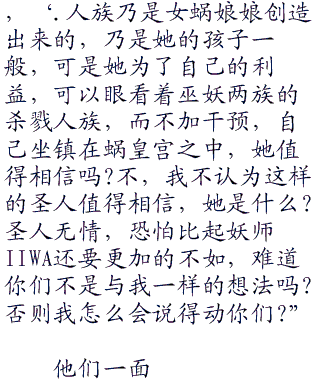 ，‘．人族乃是女蜗娘娘创造
出来的，乃是她的孩子一
般，可是她为了自己的利
益，可以眼看着巫妖两族的
杀戮人族，而不加干预，自
己坐镇在蜗皇宫之中，她值
得相信吗?不，我不认为这样
的圣人值得相信，她是什么?
圣人无情，恐怕比起妖师
IIWA还要更加的不如，难道
你们不是与我一样的想法吗?
否则我怎么会说得动你们?”
他们一面